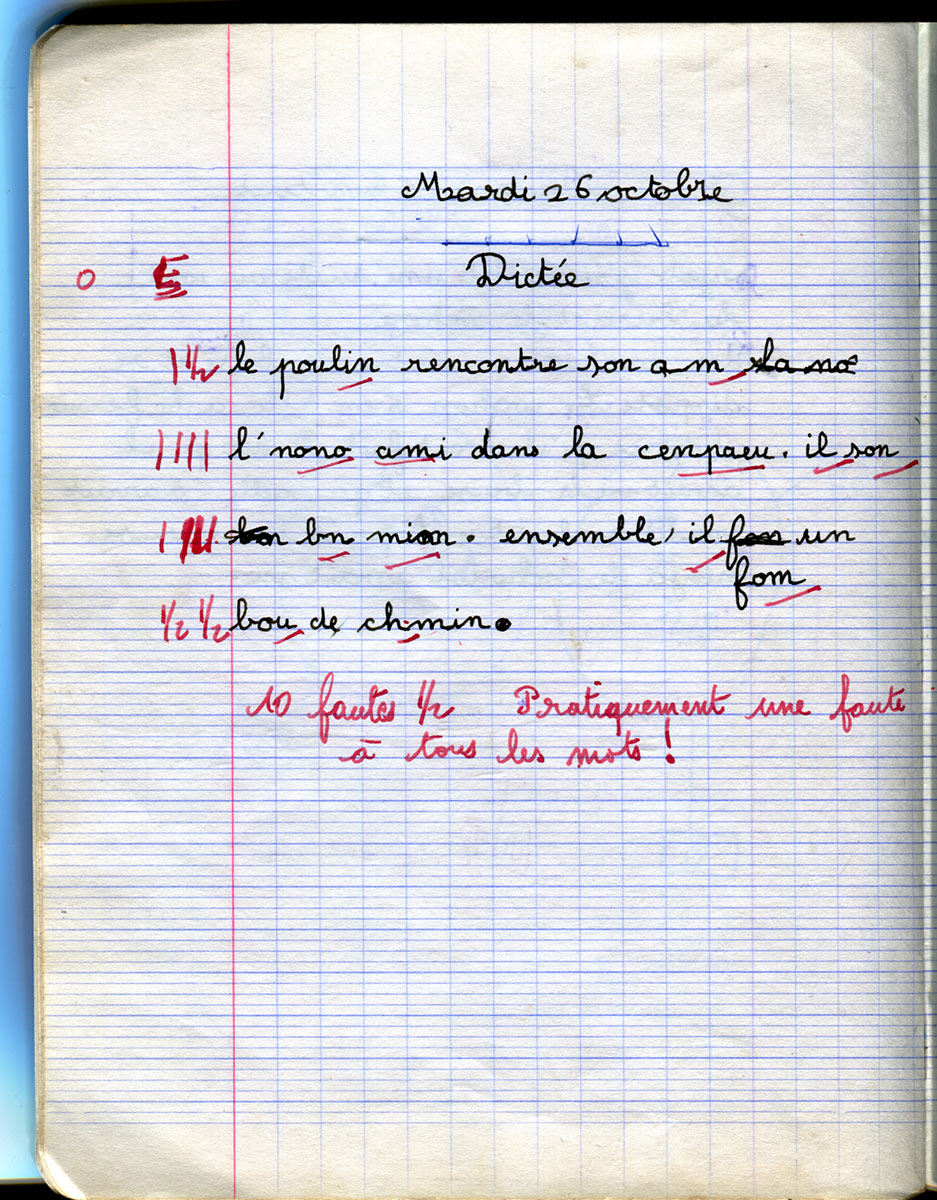 Mardi 26 octobre
0 E Dictée
1 1/2 le poulin rencontre son am sla no
|||| l'nono ami dans la cenpaeu. il son
| ||| bn mion. ensemble, il un
fom
1/2 1/2 bou de chemin.
10 fautes 1/2 Pratiquement une faute
à tous les mots !